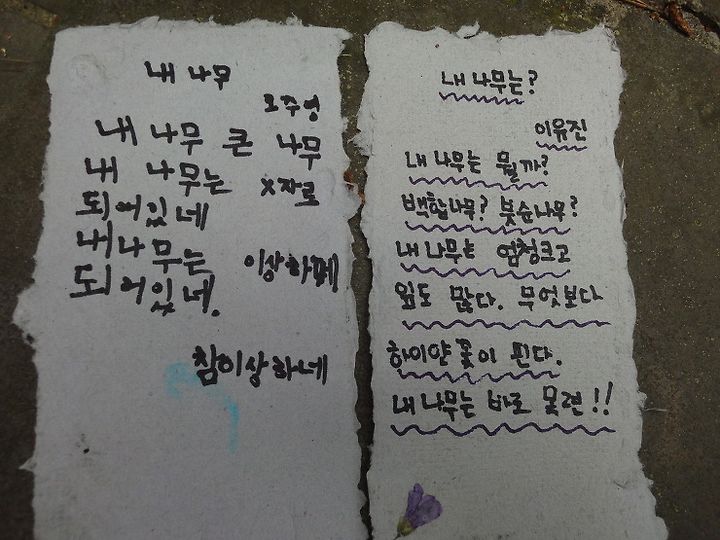 내 나무
조주영
내 나무 큰 나무
내 나무는 X자로
되어있네
내나무는 이상하페
되어있네.
참이상하네
내 나무는?
이유진
내 나무는 뭘까?
백합나무? 붓순나무?
내 나무는 엄청크고
잎도 많다. 무엇보다
하이얀 꽃이 핀다.
내 나무는 바로 목련!!